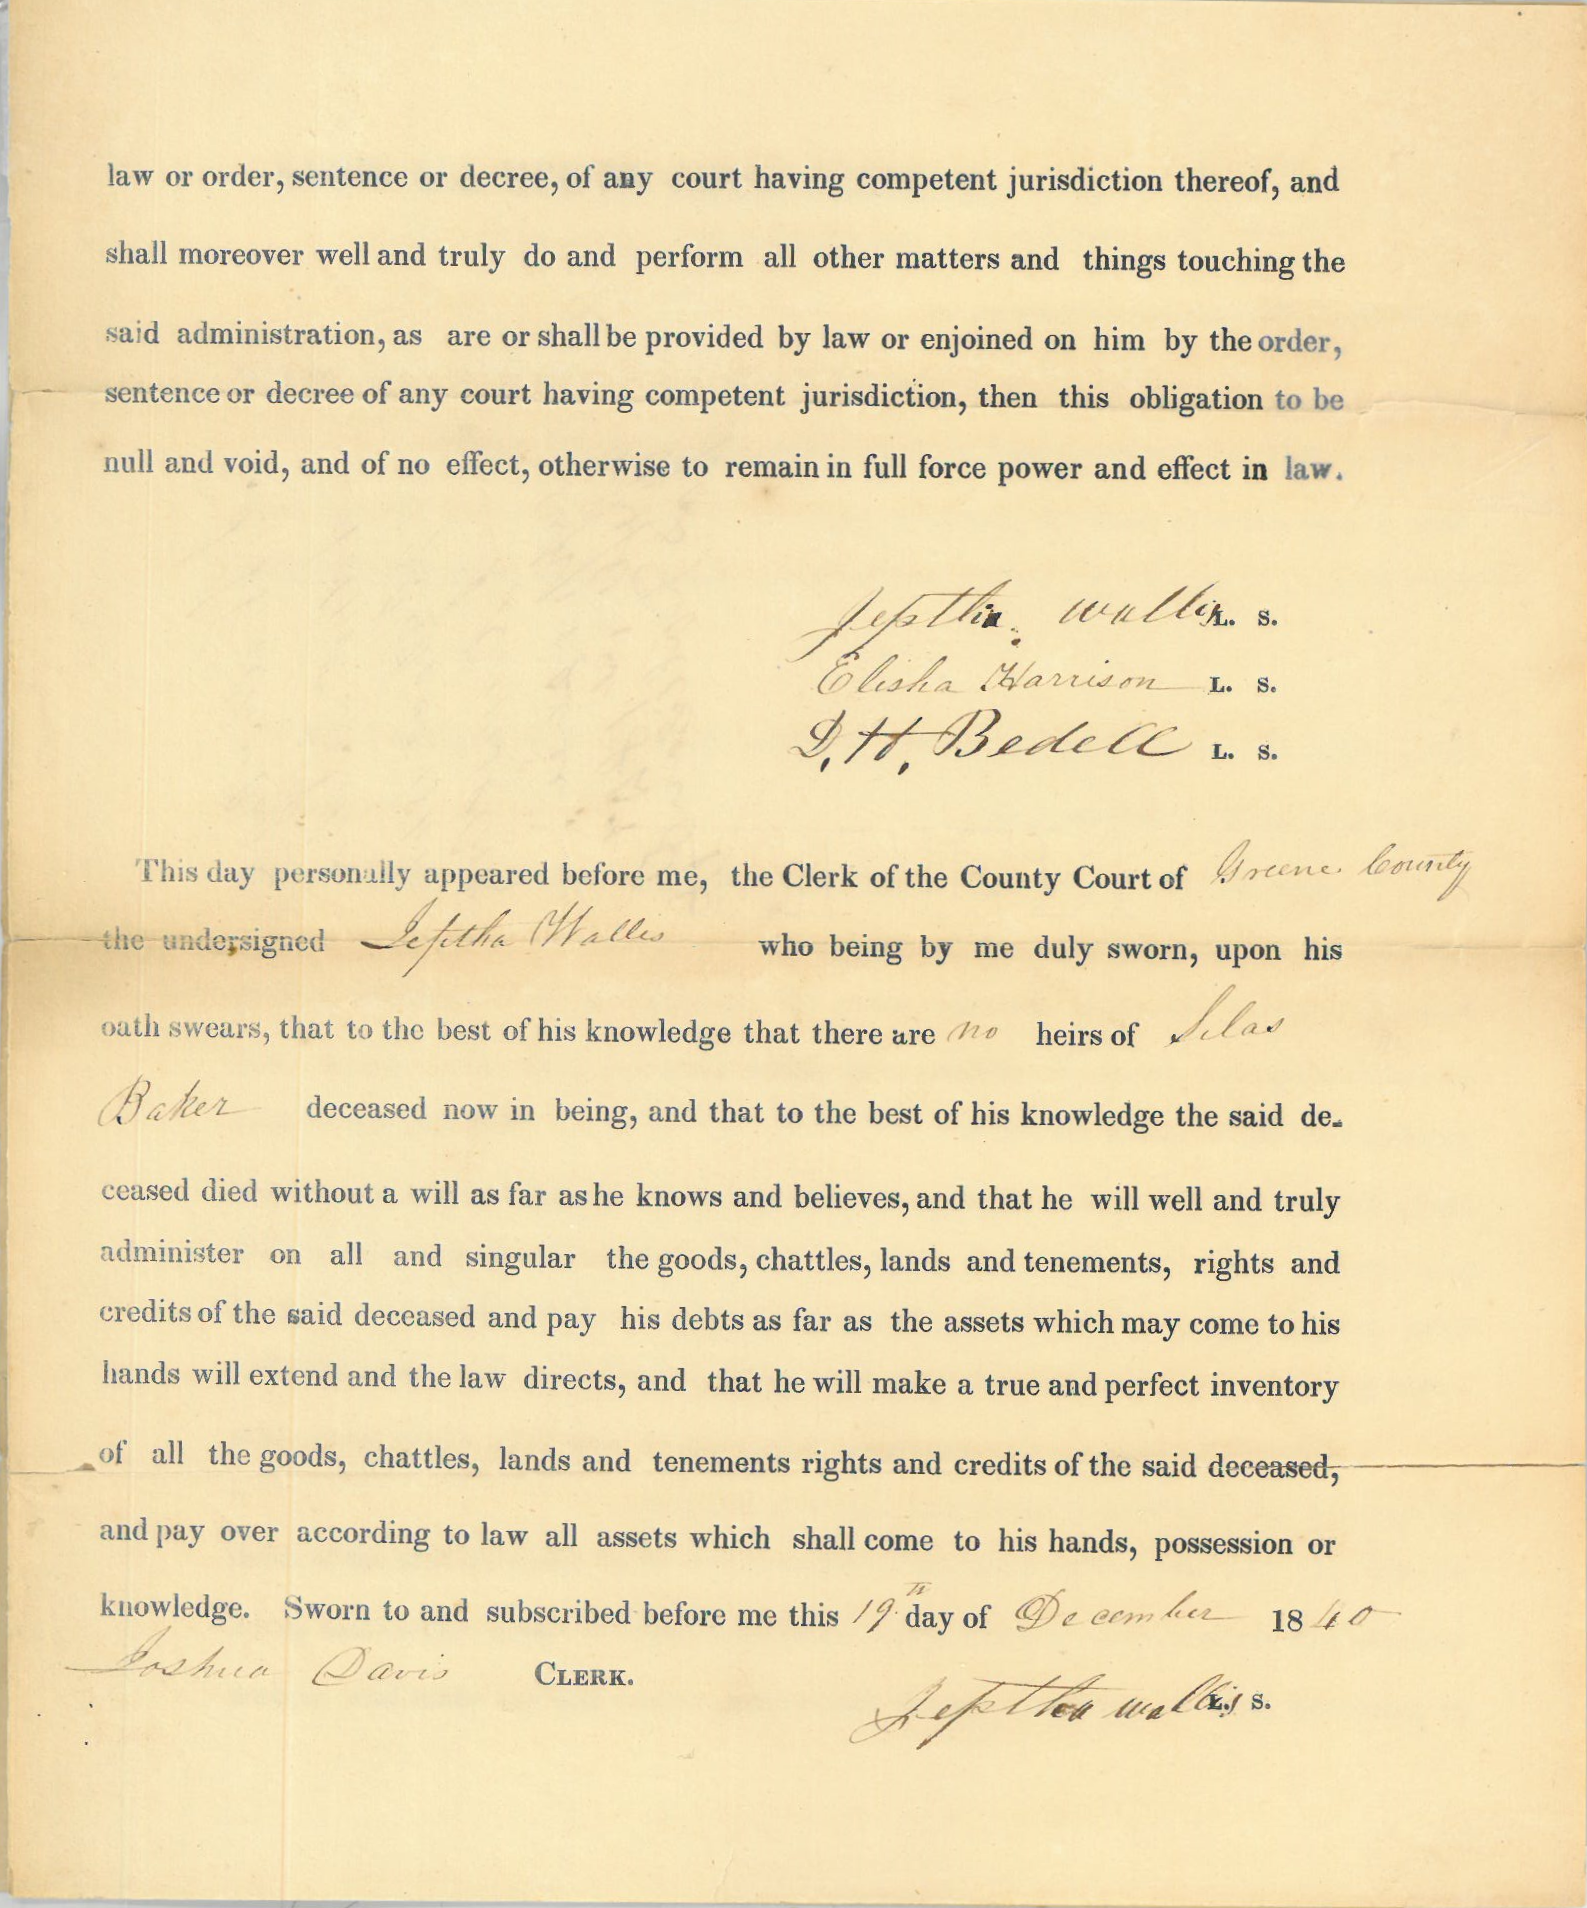 law or order, sentence or decree, of any court having competent jurisdiction thereof, and
shall moreover well and truly do and perform all other matters and things touching the
said administration, as are or shall be provided by law or enjoined on him by the order,
sentence or decree of any court having competent jurisdiction, then this obligation to be
null and void, and of no effect, otherwise to remain in full force power and effect in law.
Jeptha Wallis L. S.
Elisha Harrison L. S.
D. H. Bedell L. S.
This day personally appeared before me, the Clerk of the County Court of Greene County
the undersigned Jeptha Wallis who being by me duly sworn, upon his
oath swears, that to the best of his knowledge that there are no heirs of Silas
Baker deceased now in being, and that to the best of his knowledge the said de-
ceased died without a will as far as he knows and believes, and that he will well and truly
administer on all and singular the goods, chattles, lands and tenements, rights and
credits of the said deceased and pay his debts as far as the assets which may come to his
hands will extend and the law directs, and that he will make a true and perfect inventory
of all the goods, chattles, lands and tenements rights and credits of the said deceased,
and pay over according to law all assets which shall come to his hands, possession or
knowledge. Sworn to and subscribed before me this 19th day of December 1840
Joshua Davis CLERK.
Jeptha Wallis L. S.